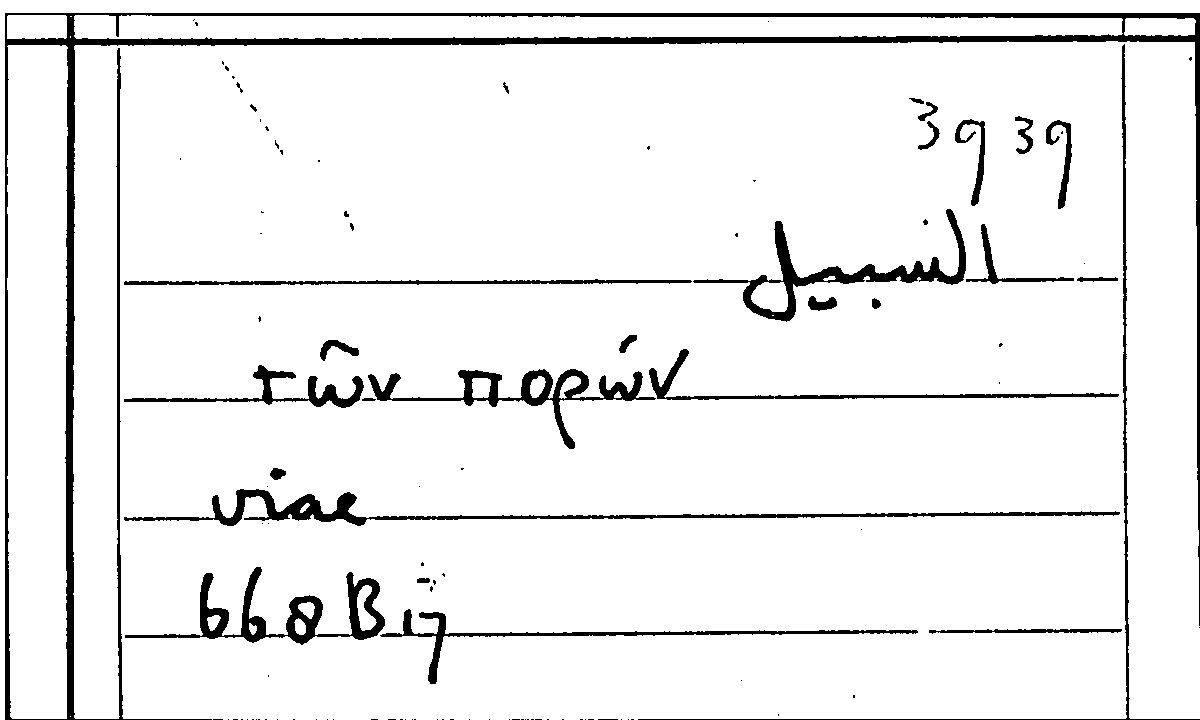 3939
السبيل
τῶν πορών
viae
668 B 17